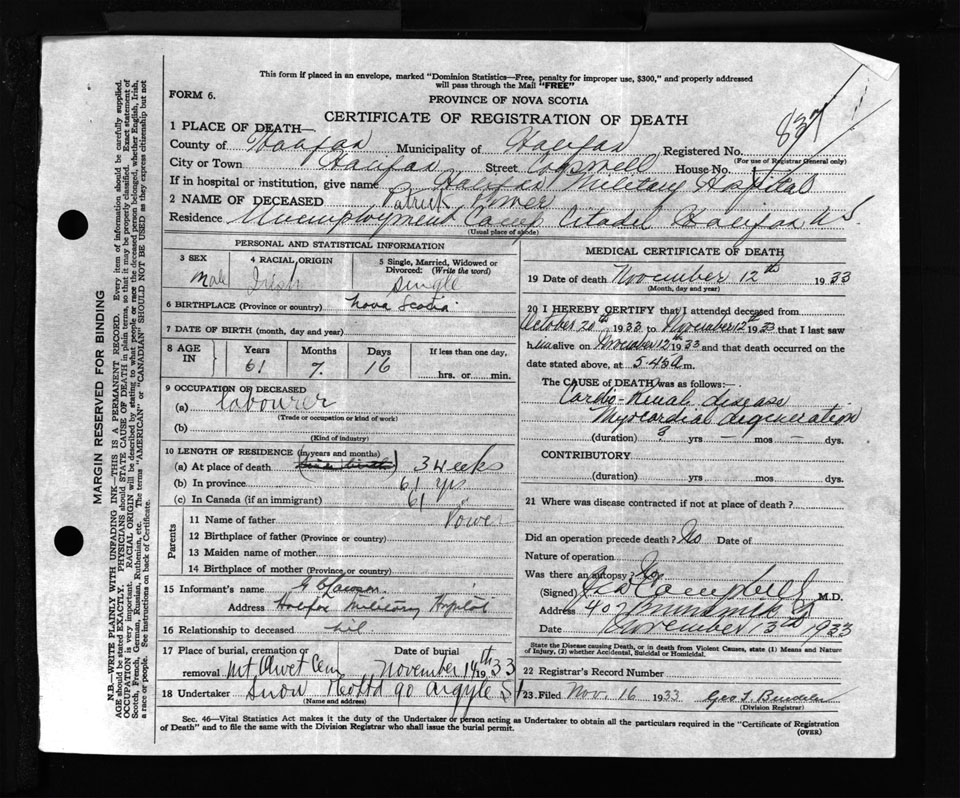 This form if placed in an envelope, marked "Dominion Statistics—Free, penalty for improper use, $300," and properly addressed
will pass through the Mail "FREE"
FORM 6.
PROVINCE OF NOVA SCOTIA
CERTIFICATE OF REGISTRATION OF DEATH
837
1 PLACE OF DEATH—
County of Halifax Municipality of Halifax Registered No.
(For use of Registrar General only)
City or Town Halifax Street Cogswell House No.
If in hospital or institution, give name Halifax Military Hospital
2 NAME OF DECEASED Patrick Power
Residence Unemployment Camp Citadel Halifax N S
(Usual place of abode)
PERSONAL AND STATISTICAL INFORMATION
3 SEX 4 RACIAL ORIGIN 5 Single, Married, Widowed or
Divorced: (Write the word)
Male Irish Single
6 BIRTHPLACE (Province or country) Nova Scotia
7 DATE OF BIRTH (month, day and year)
8 AGE IN Years Months Days If less than one day,
61 7 16 hrs. or min.
9 OCCUPATION OF DECEASED
(a) labourer
(Trade or occupation or kind of work)
(b)
(Kind of industry)
10 LENGTH OF RESIDENCE (in years and months)
(a) At place of death 3 weeks
(b) In province 61 yrs
(c) In Canada (if an immigrant) 61 "
Parents
11 Name of father Power
12 Birthplace of father (Province or country)
13 Maiden name of mother
14 Birthplace of mother (Province or country)
15 Informant's name
Address Halifax Military Hospital
16 Relationship to deceased nil
17 Place of burial, cremation or Date of burial
removal Mt Olivet Cem November 14th 1933
18 Undertaker Snow & Co Ltd 90 Argyle St
(Name and address)
MEDICAL CERTIFICATE OF DEATH
19 Date of death November 12th 1933
(Month, day and year)
20 I HEREBY CERTIFY that I attended deceased from
October 20th 1933 to November 12th 1933 that I last saw
him alive on November 12th 1933 and that death occurred on the
date stated above, at 5.45 a m.
The CAUSE OF DEATH was as follows:—
Cardio-Renal disease
Myocardial degeneration
(duration) 3 yrs — mos — dys.
CONTRIBUTORY
(duration) yrs. mos. dys.
21 Where was disease contracted if not at place of death?
Did an operation precede death? No Date of
Nature of operation
Was there an autopsy? No
(Signed) Campbell M.D.
Address 407 Brunswick St
Date November 13th 1933
State the Disease causing Death, or in death from Violent Causes, state (1) Means and Nature
of Injury, (2) whether Accidental, Suicidal or Homicidal.
22 Registrar's Record Number
23. Filed Nov. 16 1933 Geo
(Division Registrar)
Sec. 46—Vital Statistics Act makes it the duty of the Undertaker or person acting as Undertaker to obtain all the particulars required in the "Certificate of Registration
of Death" and to file the same with the Division Registrar who shall issue the burial permit.
(OVER)
MARGIN RESERVED FOR BINDING
N.B.—WRITE PLAINLY WITH UNFADING INK—THIS IS A PERMANENT RECORD. Every item of information should be carefully supplied.
AGE should be stated EXACTLY. PHYSICIANS should STATE CAUSE OF DEATH in plain terms, so that it may be properly classified. Exact statement of
OCCUPATION is very important. RACIAL ORIGIN will be described by stating to what people or race the deceased person belonged, whether English, Irish,
Scotch, French, German, Russian, Ruthenian, etc. The terms "AMERICAN" or "CANADIAN" SHOULD NOT BE USED as they express citizenship but not
a race or people. See instructions on back of Certificate.